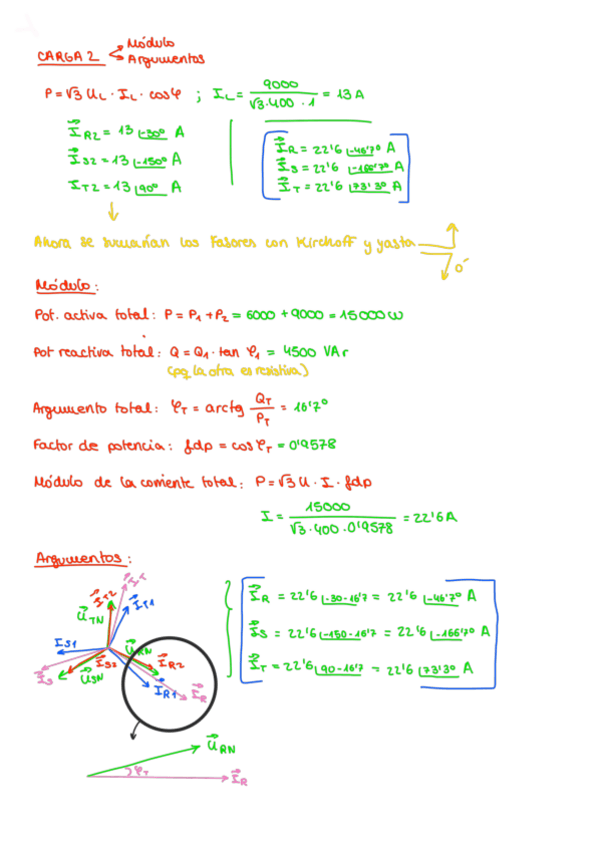 CARGA 2
Módulo
Argumentos
P = √3 UL · IL · cosφ ; IL = 9000 / √3·400·1 = 13 A
IR2 = 13 |-30º A
IS2 = 13 |-150º A
IT2 = 13 |90º A
IR = 22'6 |-46'7º A
IS = 22'6 |-166'7º A
IT = 22'6 |73'3º A
Ahora se sumarían los fasores con Kirchoff y yasta
ó
Módulo:
Pot. activa total: P = P1 + P2 = 6000 + 9000 = 15000 W
Pot reactiva total: Q = Q1 · tan φ1 = 4500 VAr
(pq la otra es resistiva)
Argumento total: φT = arctg QT / PT = 16'7º
Factor de potencia: fdp = cosφT = 0'9578
Módulo de la corriente total: P = √3 U · I · fdp
I = 15000 / √3·400·0'9578 = 22'6 A
Argumentos:
IT
IT2
IT1
UTN
IS1
IS2
URN
IR2
IS
USN
IR1
IR
IR = 22'6 |-30-16'7 = 22'6 |-46'7º A
IS = 22'6 |-150-16'7 = 22'6 |-166'7º A
IT = 22'6 |90-16'7 = 22'6 |73'3º A
URN
φT
IR